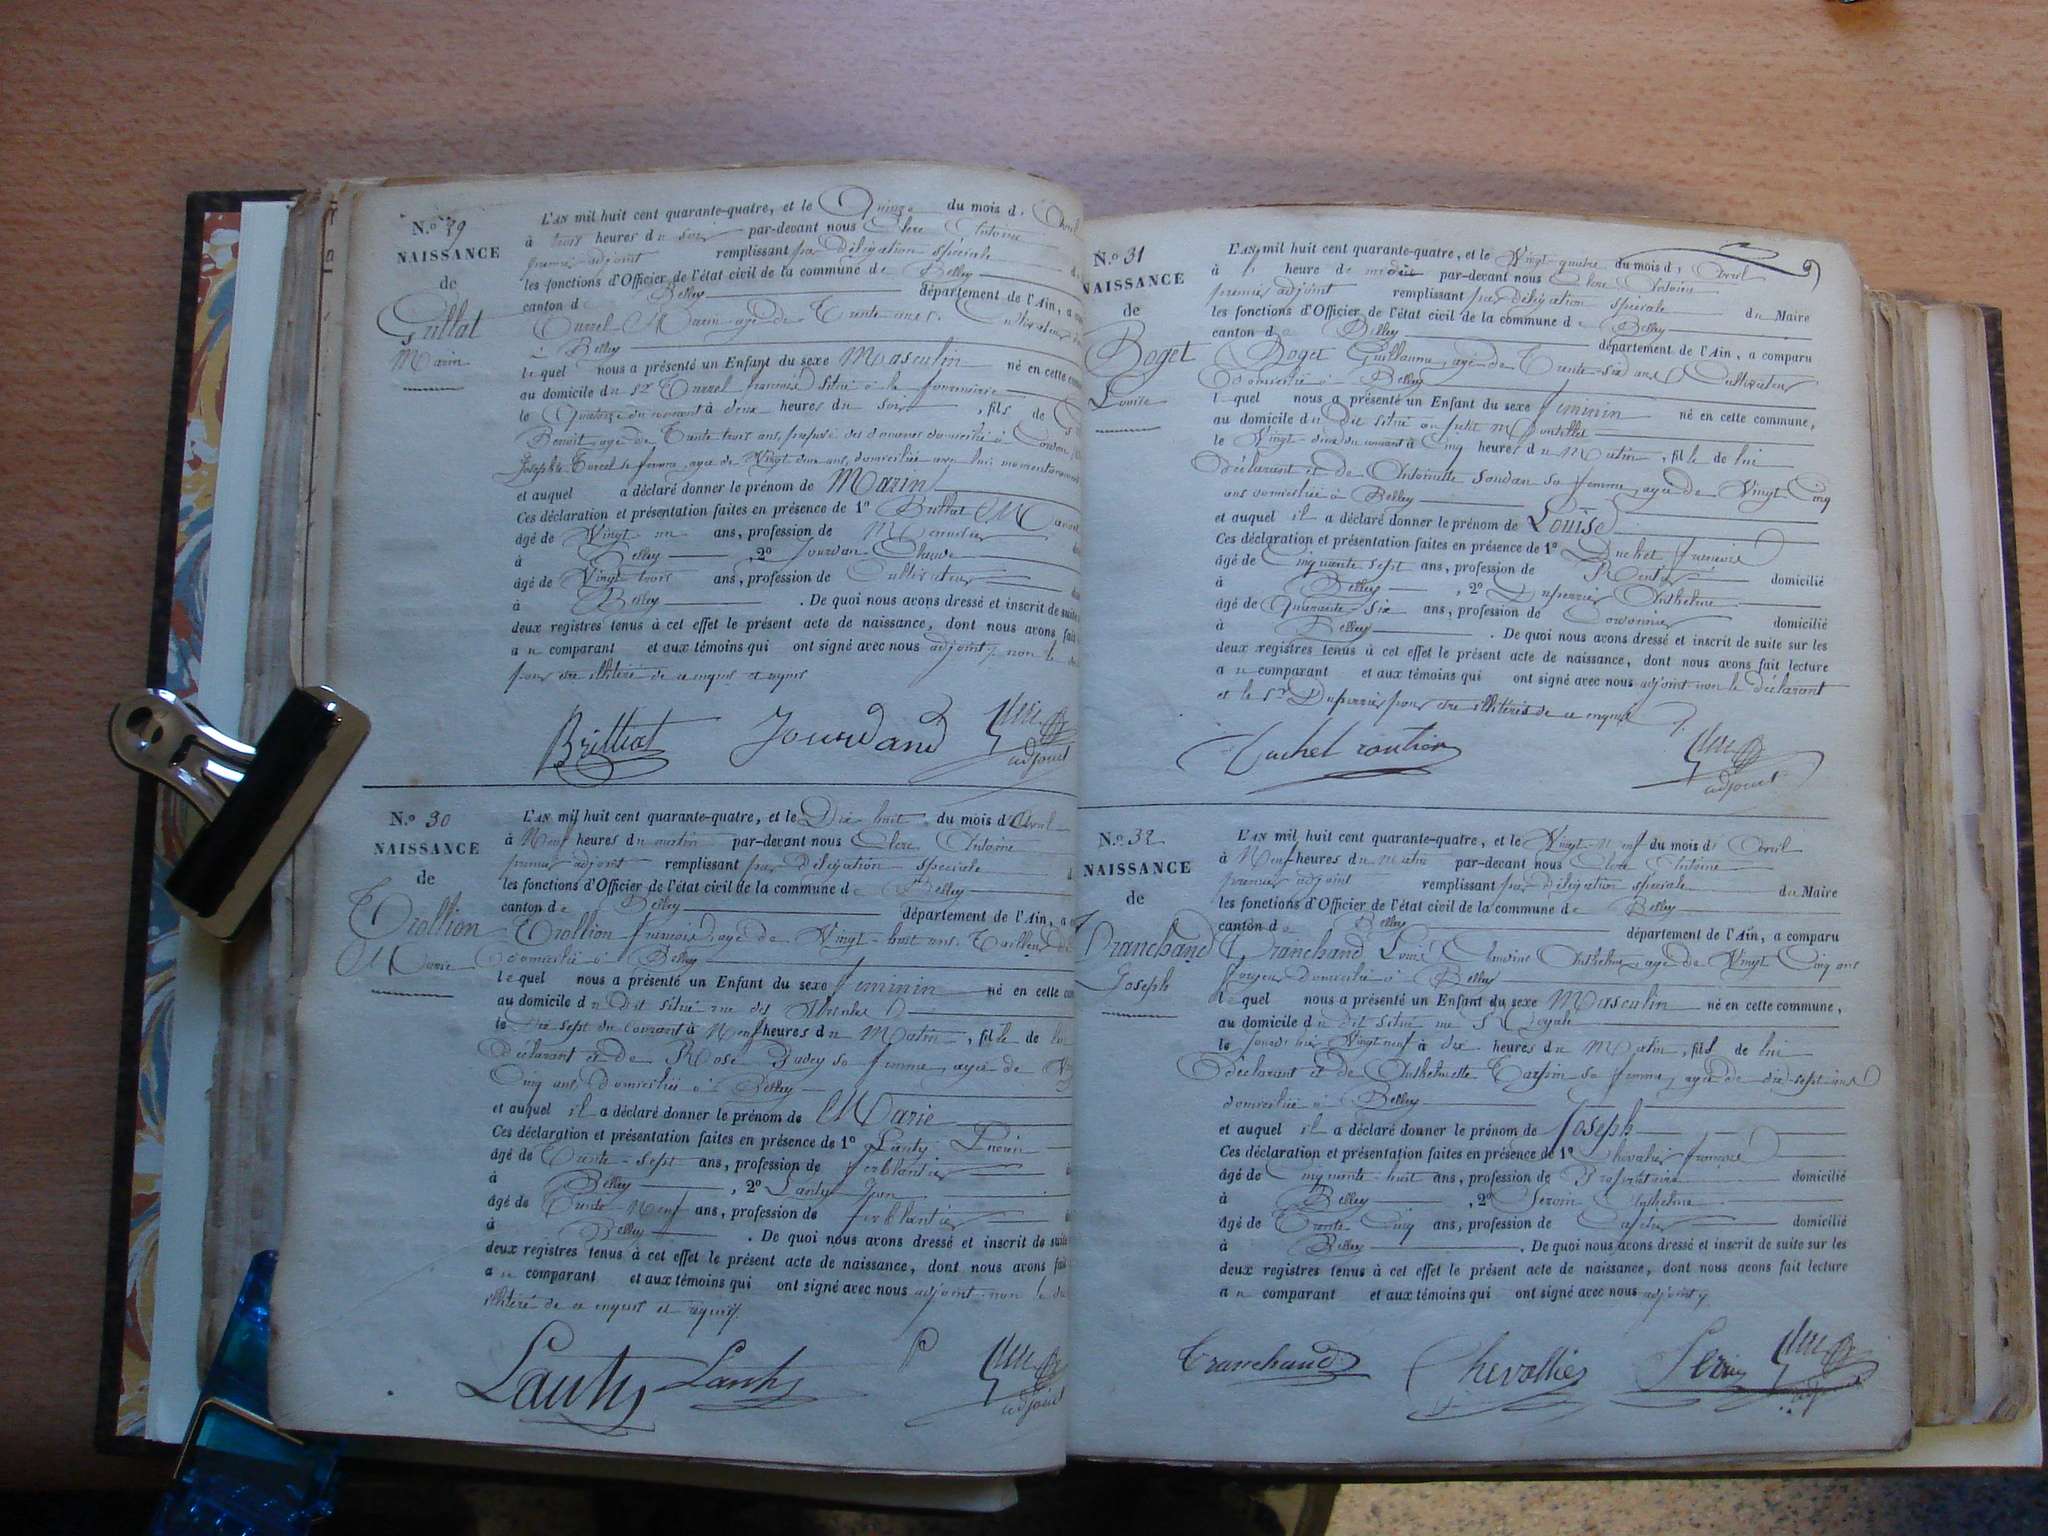 N.º 29
NAISSANCE
de
Gullat
Marin
L'AN mil huit cent quarante-quatre, et le Quinze du mois d' Avril
à trois heures du soir par-devant nous Clerc Antoine
premier adjoint remplissant par Délégation spéciale
les fonctions d'Officier de l'état civil de la commune de Belley
canton de Belley département de l'Ain, a
Turrel Marin agé de Trente ans, Cultivateur
à Belley
lequel nous a présenté un Enfant du sexe Masculin né en cette
au domicile du Sr Turrel françois situé à la
le Quatorze du courant à deux heures du soir, fils de
Benoit, agé de Trente trois ans, préposé des douanes domicilié à
Josephte Turrel sa femme, agée de Vingt deux ans, domiciliée avec lui momentanement
et auquel a déclaré donner le prénom de Marin
Ces déclaration et présentation faites en présence de 1º Brilliat
âgé de Vingt un ans, profession de Menuisier
à Belley, 2º Jourdan Claude
âgé de Vingt trois ans, profession de Cultivateur
à Belley. De quoi nous avons dressé et inscrit de suite
deux registres tenus à cet effet le présent acte de naissance, dont nous avons fait
au comparant et aux témoins qui ont signé avec nous adjoint, non le
pour être illitéré de ce enquis et requis
Brilliat Jourdand Clerc
adjoint
N.º 30
NAISSANCE
de
Trollion
Marie
L'AN mil huit cent quarante-quatre, et le Dix huit du mois d'Avril
à Neuf heures du matin par-devant nous Clerc Antoine
premier adjoint remplissant par Délégation spéciale
les fonctions d'Officier de l'état civil de la commune de Belley
canton de Belley département de l'Ain, a
Trollion françois, agé de Vingt-huit ans, Tailleur
domicilié à Belley
lequel nous a présenté un Enfant du sexe feminin né en cette
au domicile du dit situé rue des
le Dix sept du Courant à Neuf heures du Matin, fille de lui
déclarant et de Rose sa femme, agée de Vingt
Cinq ans, domiciliée à Belley
et auquel il a déclaré donner le prénom de Marie
Ces déclaration et présentation faites en présence de 1º Lanty
âgé de Trente-sept ans, profession de ferblantier
à Belley, 2º Lanty Jean
âgé de Trente Neuf ans, profession de ferblantier
à Belley. De quoi nous avons dressé et inscrit de suite
deux registres tenus à cet effet le présent acte de naissance, dont nous avons fait
au comparant et aux témoins qui ont signé avec nous adjoint non le
illitéré de ce enquis et requis
Lanty Lanty Clerc
adjoint
N.º 31
NAISSANCE
de
Boget
Louise
L'AN mil huit cent quarante-quatre, et le Vingt-quatre du mois d' Avril
à heure de par-devant nous Clerc Antoine
premier adjoint remplissant par délégation spéciale du Maire
les fonctions d'Officier de l'état civil de la commune de Belley
canton de Belley département de l'Ain, a comparu
Boget Guillaume, agé de Trente-six ans, Cultivateur
Domicilié à Belley
lequel nous a présenté un Enfant du sexe feminin né en cette commune,
au domicile du Dit situé au petit
le Vingt-deux du courant à Cinq heures du Matin, fille de lui
déclarant et de Antoinette Soudan sa femme, agée de Vingt Cinq
ans domiciliée à Belley
et auquel il a déclaré donner le prénom de Louise
Ces déclaration et présentation faites en présence de 1º Duchet françois
âgé de Cinquante sept ans, profession de Rentier domicilié
à Belley, 2º Duperrier Anthelme
âgé de Quarante-six ans, profession de Cordonnier domicilié
à Belley. De quoi nous avons dressé et inscrit de suite sur les
deux registres tenus à cet effet le présent acte de naissance, dont nous avons fait lecture
au comparant et aux témoins qui ont signé avec nous adjoint non le déclarant
et le Sr Duperrier pour être illitérés de ce enquis
Clerc
adjoint
N.º 32
NAISSANCE
de
Tranchand
Joseph
L'AN mil huit cent quarante-quatre, et le Vingt-Neuf du mois d' Avril
à Neuf heures du Matin par-devant nous Clerc Antoine
premier adjoint remplissant par Délégation spéciale du Maire
les fonctions d'Officier de l'état civil de la commune de Belley
canton de Belley département de l'Ain, a comparu
Tranchand Louis Anthelme, agé de Vingt Cinq ans
Domicilié à Belley
lequel nous a présenté un Enfant du sexe Masculin né en cette commune,
au domicile du dit situé rue Royale
le Vingt neuf à heures du Matin, fils de lui
déclarant et de Anthelmette Tarpin sa femme, agée de dix-sept ans
domiciliée à Belley
et auquel il a déclaré donner le prénom de Joseph
Ces déclaration et présentation faites en présence de 1º Chevalier françois
âgé de Cinquante-huit ans, profession de Propriétaire domicilié
à Belley, 2º Anthelme
âgé de Trente Cinq ans, profession de domicilié
à Belley. De quoi nous avons dressé et inscrit de suite sur les
deux registres tenus à cet effet le présent acte de naissance, dont nous avons fait lecture
au comparant et aux témoins qui ont signé avec nous adjoint
Tranchand Chevallier Clerc